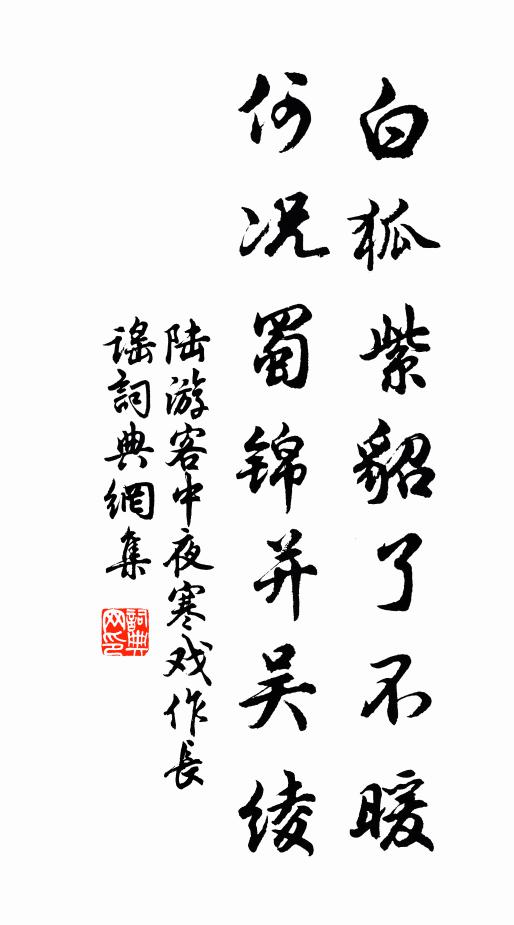 白狐紫貂了不暖
何况蜀锦并吴绫
陆游客中夜寒戏作长
谣詞典網集
詞典
网印